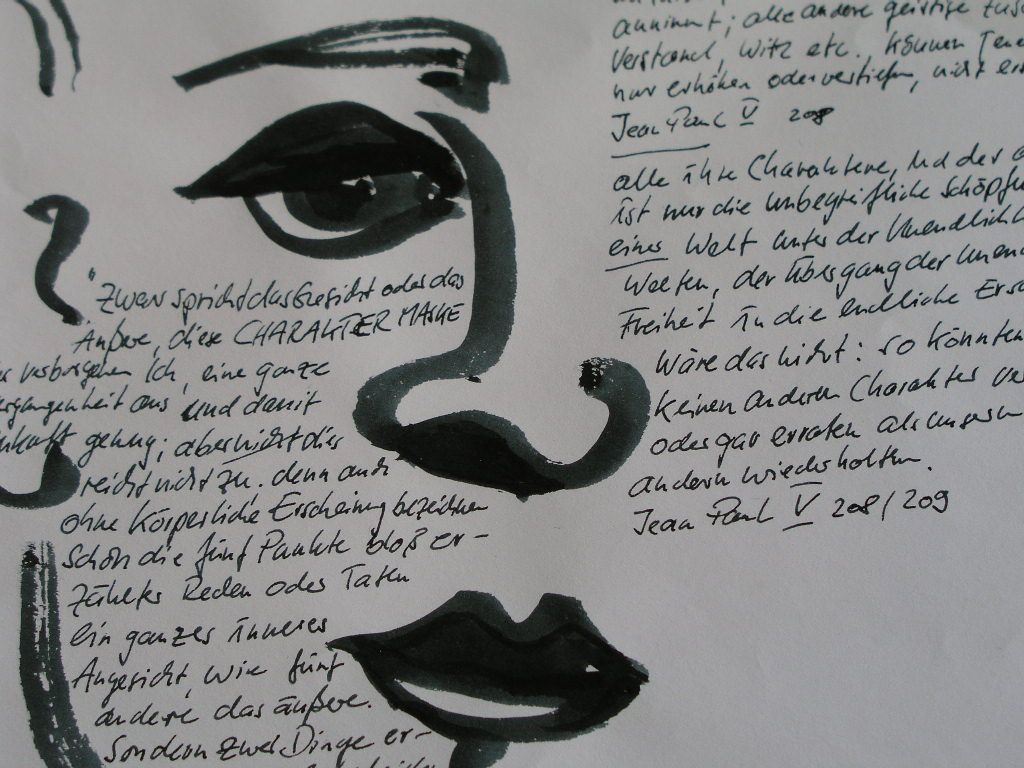 "Zwar spricht das Gesicht oder das
Äußere, diese CHARAKTER MASKE
verborgenen Ich, eine ganze
ergangenheit aus und damit
genug; aber nicht dies
reicht nicht zu. denn auch
ohne körperliche Erscheinung bezeichnen
schon die fünf Punkte bloß er-
zählter Reden oder Taten
ein ganzes inneres
Angesicht, wie fünf
andere das äußere.
Sondern zwei Dinge er-
annimmt; alle andere geistige
Verstand, Witz etc. können
nur erhöhen oder vertiefen, nicht
Jean Paul V 208
alle ihre Charaktere, und der
ist nur die unbegreifliche Schöpfu
einer Welt unter der Unendlichk
Welten, der Übergang der unen
Freiheit in die endliche Ersc
Wäre das nicht: so könnten
keinen anderen Charakter
oder gar erraten als unsern
andern wiederholten.
Jean Paul V 208/209